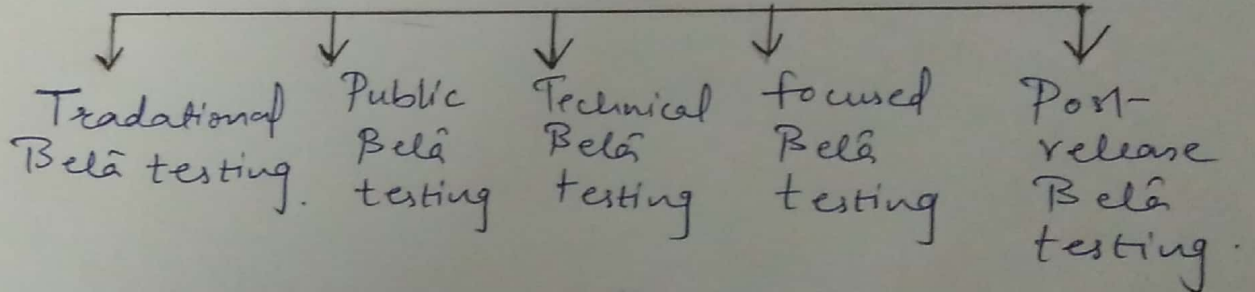 Tradational
Beta testing.
Public
Beta
testing
Technical
Beta
testing
focused
Beta
testing
Post-
release
Beta
testing.